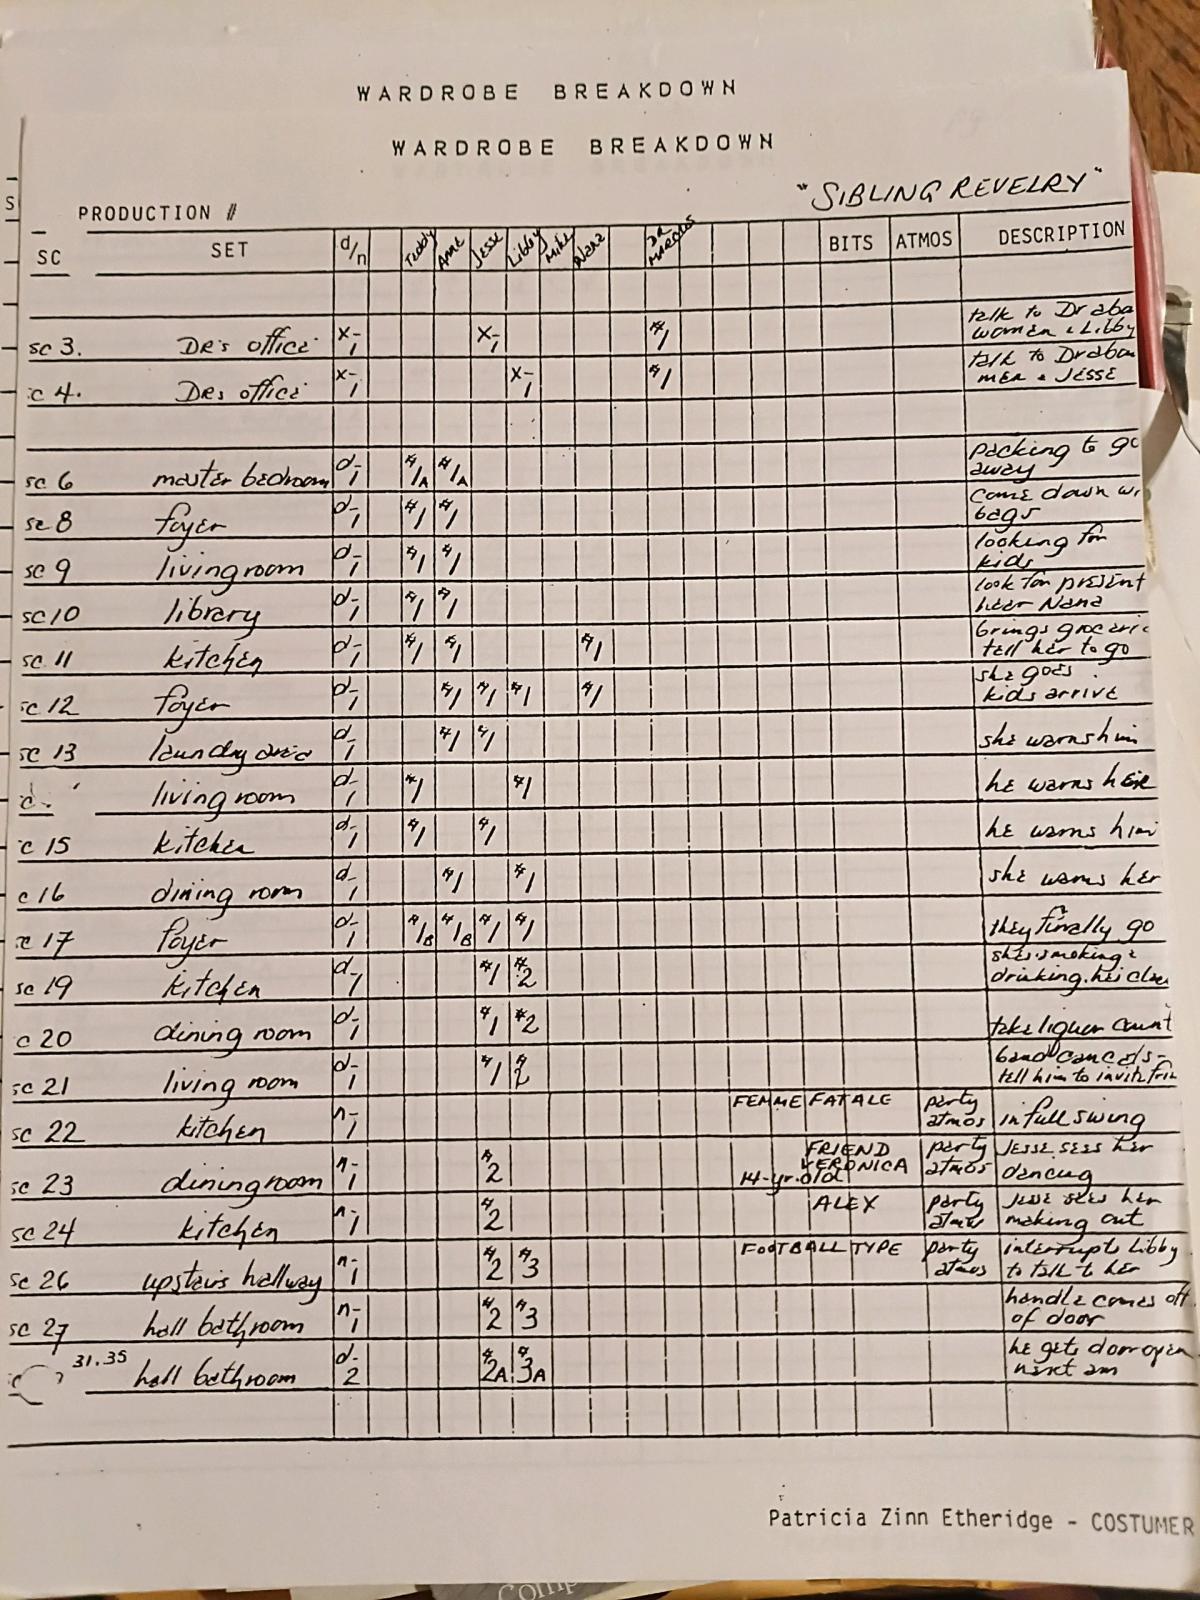 WARDROBE BREAKDOWN
WARDROBE BREAKDOWN
"SIBLING REVELRY"
PRODUCTION #
SC SET d/n Teddy Anne Jesse Libby Mike Nana DR MARCUS BITS ATMOS DESCRIPTION
sc 3. DR's office x-1 x-1 #1 talk to Dr aba women & Libby
c 4. DRs office x-1 x-1 #1 talk to Dr abou men & JESSE
sc 6 master bedroom d-1 #1A #1A packing to go away
sc 8 foyer d-1 #1 #1 come down w bags
sc 9 livingroom d-1 #1 #1 looking for kids
sc 10 library d-1 #1 #1 look for present hear Nana
sc 11 kitchen d-1 #1 #1 #1 brings groceri tell her to go
sc 12 foyer d-1 #1 #1 #1 #1 she goes. kids arrive
sc 13 laundry area d-1 #1 #1 she warns him
c. living room d-1 #1 #1 he warns her
c 15 kitchen d-1 #1 #1 he warns him
c 16 dining room d-1 #1 #1 she warns her
c 17 foyer d-1 #1B #1B #1 #1 they finally go
sc 19 kitchen d-1 #1 #2 she's smoking & drinking. he's
c 20 dining room d-1 #1 #2 take liquor count
sc 21 living room d-1 #1 #2 band cancels- tell him to invite
sc 22 kitchen n-1 FEMME FATALE party atmos in full swing
sc 23 diningroom n-1 #2 FRIEND VERONICA 14-yr-old party atmos JESSE sees her dancing
sc 24 kitchen n-1 #2 ALEX party atmos JESSE sees her making out
sc 26 upstairs hallway n-1 #2 #3 FOOTBALL TYPE party atmos interrupts Libby to talk to her
sc 27 hall bathroom n-1 #2 #3 handle comes off of door
31.35 hall bathroom d-2 #2A #3A he gets door open next am
Patricia Zinn Etheridge - COSTUMER
Comp